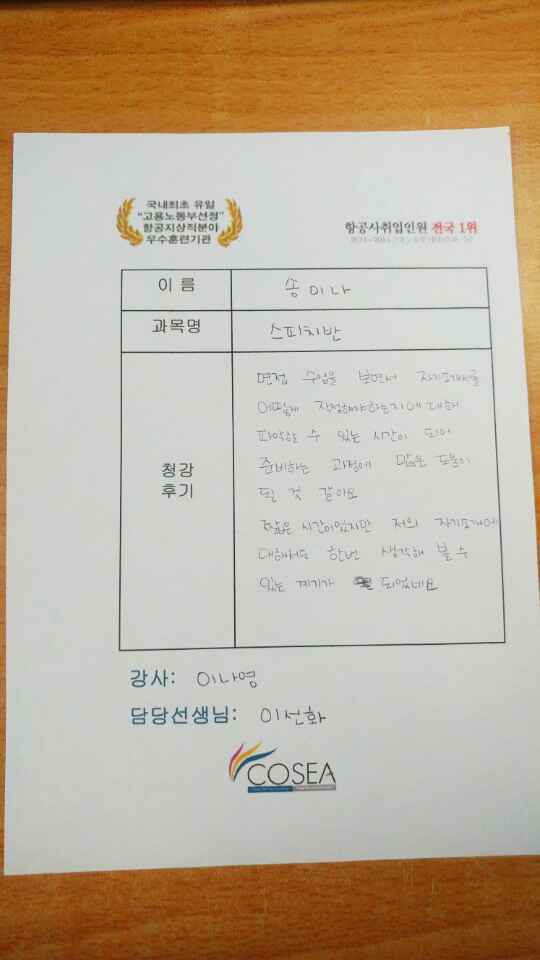 국내최초 유일
"고용노동부선정"
항공지상직분야
우수훈련기관
항공사취업인원 전국 1위
이 름
송미나
과목명
스피치반
청강
후기
면접 수업을 보면서 자기소개서를
어떻게 작성해야하는지에 대해
파악할 수 있는 시간이 되어
준비하는 과정에 많은 도움이
될 것 같아요
짧은 시간이었지만 저의 자기소개에
대해서도 한번 생각해 볼 수
있는 계기가 되었네요
강사: 이나영
담당선생님: 이선화
COSEA